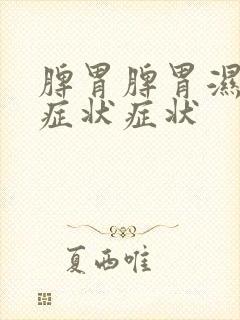 脾胃脾胃濕
症状症状
夏西唯